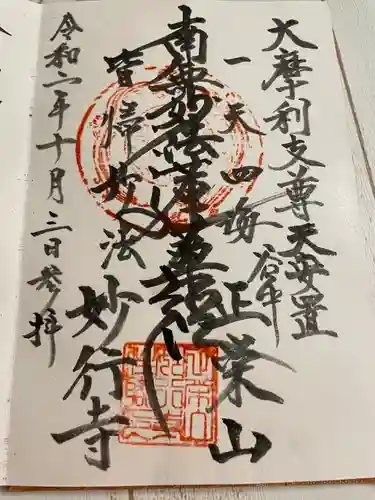 大摩利支尊天安置
谷中
一天四海
正栄山
南無妙法蓮華経
皆帰妙法
妙行寺
令和二年十月三日参拝